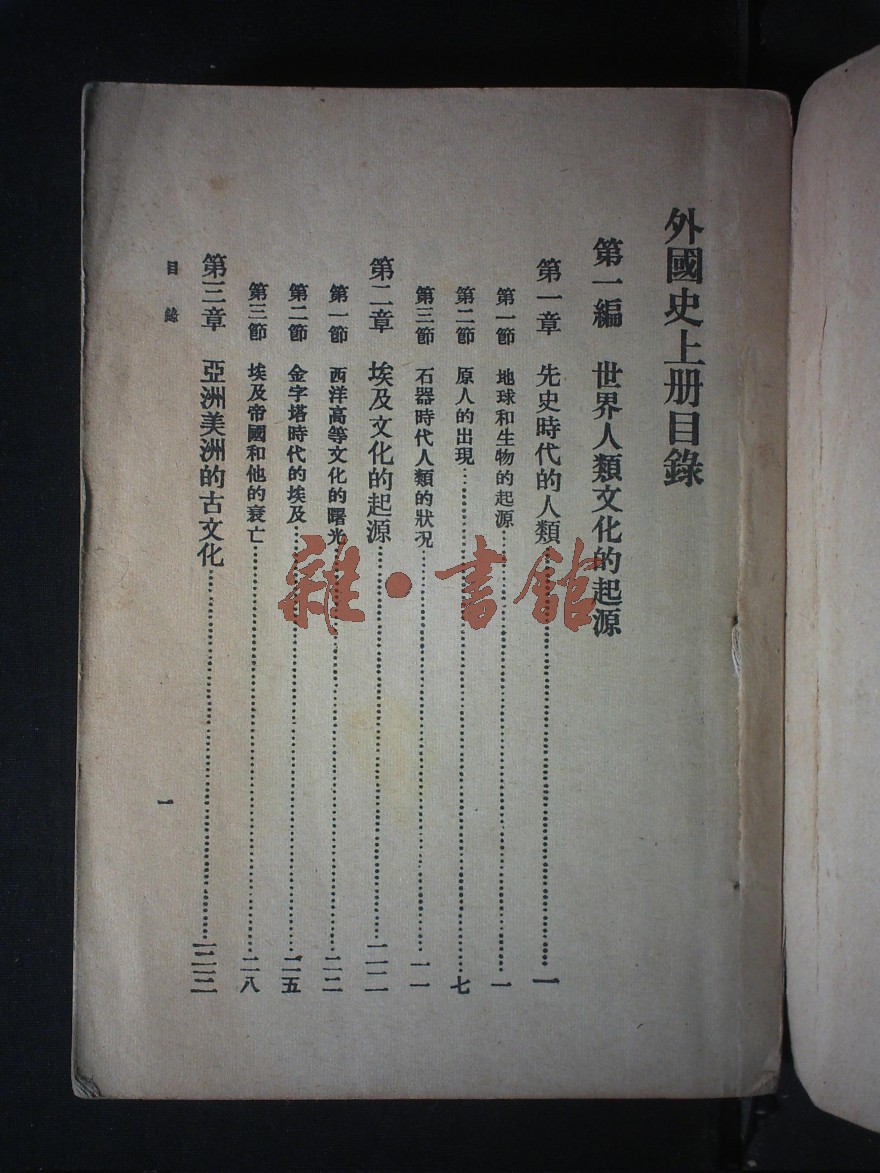 外國史上册目錄
第一編　世界人類文化的起源
第一章　先史時代的人類……………一
第一節　地球和生物的起源……………一
第二節　原人的出現……………七
第三節　石器時代人類的狀況……………一一
第二章　埃及文化的起源……………二二
第一節　西洋高等文化的曙光……………二二
第二節　金字塔時代的埃及……………二五
第三節　埃及帝國和他的衰亡……………二八
第三章　亞洲美洲的古文化……………三三
目錄
一
雜·書館